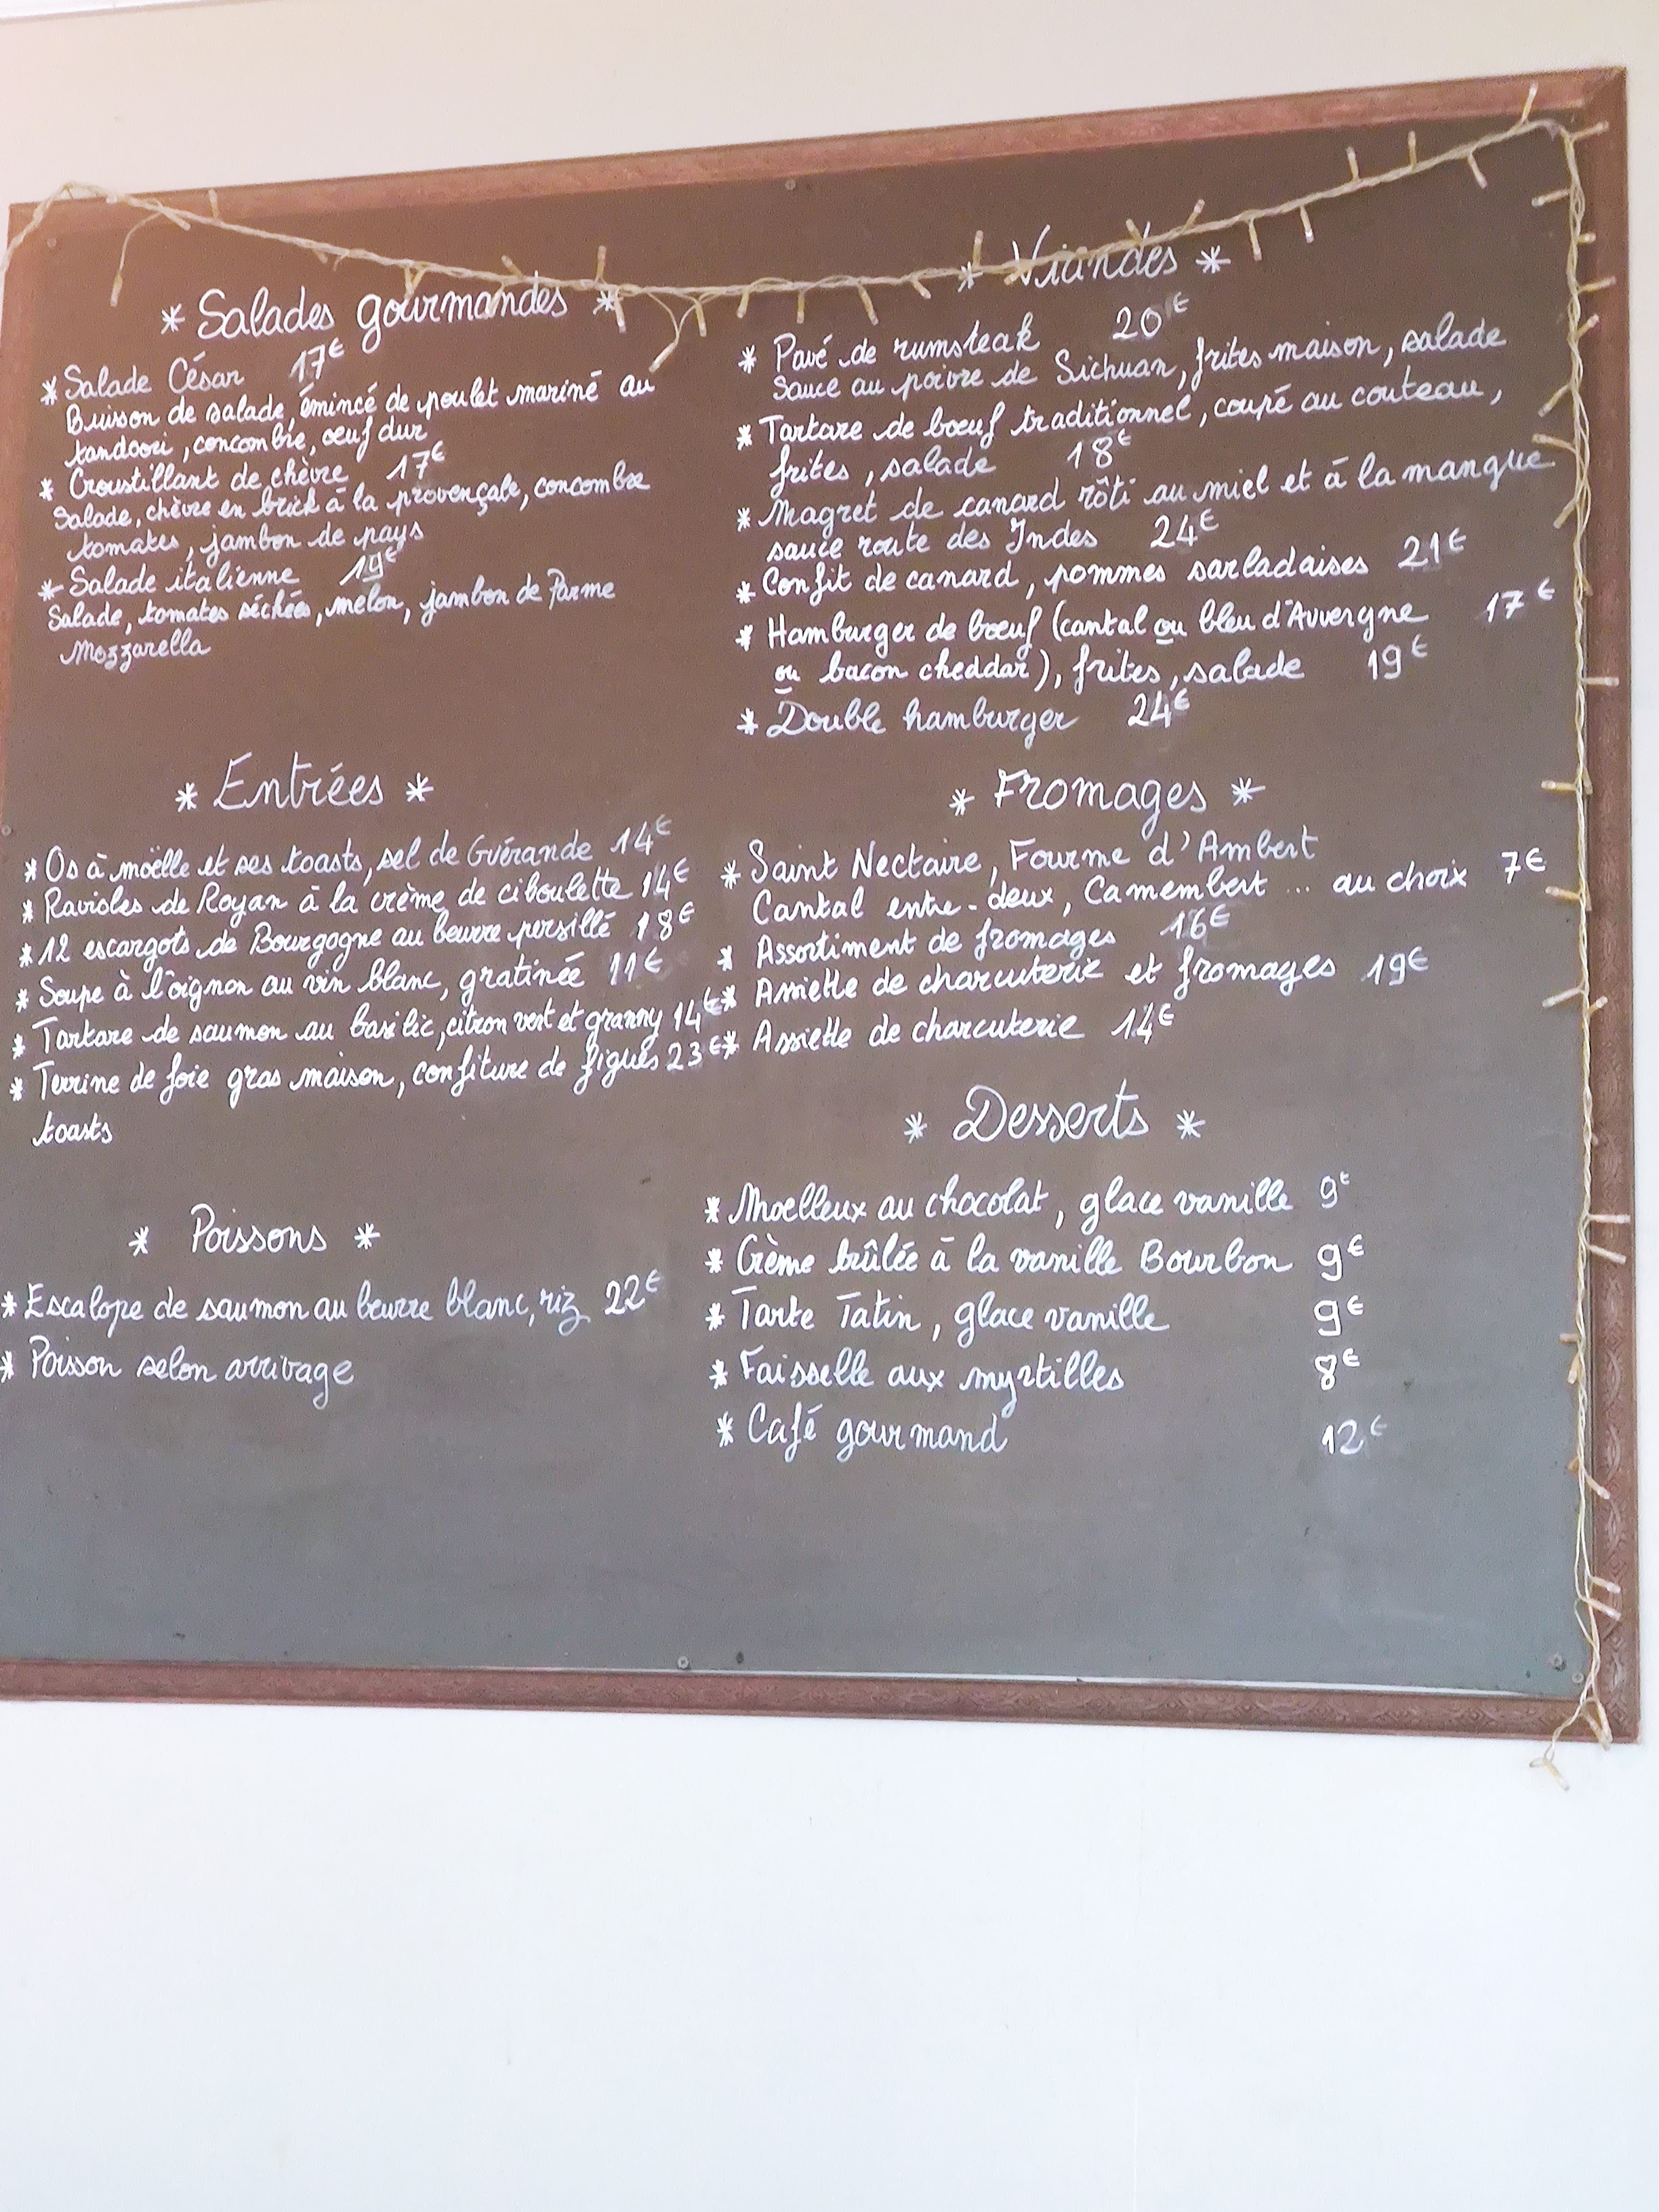 * Salades gourmandes *
* Salade César 17€
Buisson de salade, émincé de poulet mariné au
tandoori, concombre, œuf dur
* Croustillant de chèvre 17€
Salade, chèvre en brick à la provençale, concombre
tomates, jambon de pays
* Salade italienne 19€
Salade, tomates séchées, melon, jambon de Parme
Mozzarella
* Entrées *
* Os à moëlle et ses toasts, sel de Guérande 14€
* Ravioles de Royan à la crème de ciboulette 14€
* 12 escargots de Bourgogne au beurre persillé 18€
* Soupe à l'oignon au vin blanc, gratinée 11€
* Tartare de saumon au basilic, citron vert et granny 14€
* Terrine de foie gras maison, confiture de figues 23€
toasts
* Poissons *
* Escalope de saumon au beurre blanc, riz 22€
* Poisson selon arrivage
* Viandes *
* Pavé de rumsteak 20€
sauce au poivre de Sichuan, frites maison, salade
* Tartare de bœuf traditionnel, coupé au couteau,
frites, salade 18€
* Magret de canard rôti au miel et à la mangue
sauce route des Indes 24€
* Confit de canard, pommes sarladaises 21€
* Hamburger de bœuf (cantal ou bleu d'Auvergne 17€
ou bacon cheddar), frites, salade 19€
* Double hamburger 24€
* Fromages *
* Saint Nectaire, Fourme d'Ambert
Cantal entre-deux, Camembert ... au choix 7€
* Assortiment de fromages 16€
* Assiette de charcuterie et fromages 19€
* Assiette de charcuterie 14€
* Desserts *
* Moelleux au chocolat, glace vanille 9€
* Crème brûlée à la vanille Bourbon 9€
* Tarte Tatin, glace vanille 9€
* Faisselle aux myrtilles 8€
* Café gourmand 12€